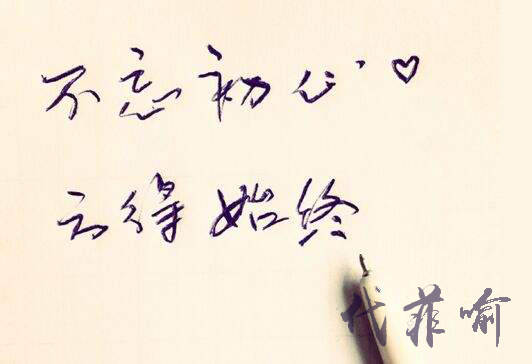 不忘初心♡
方得始终
代菲喻